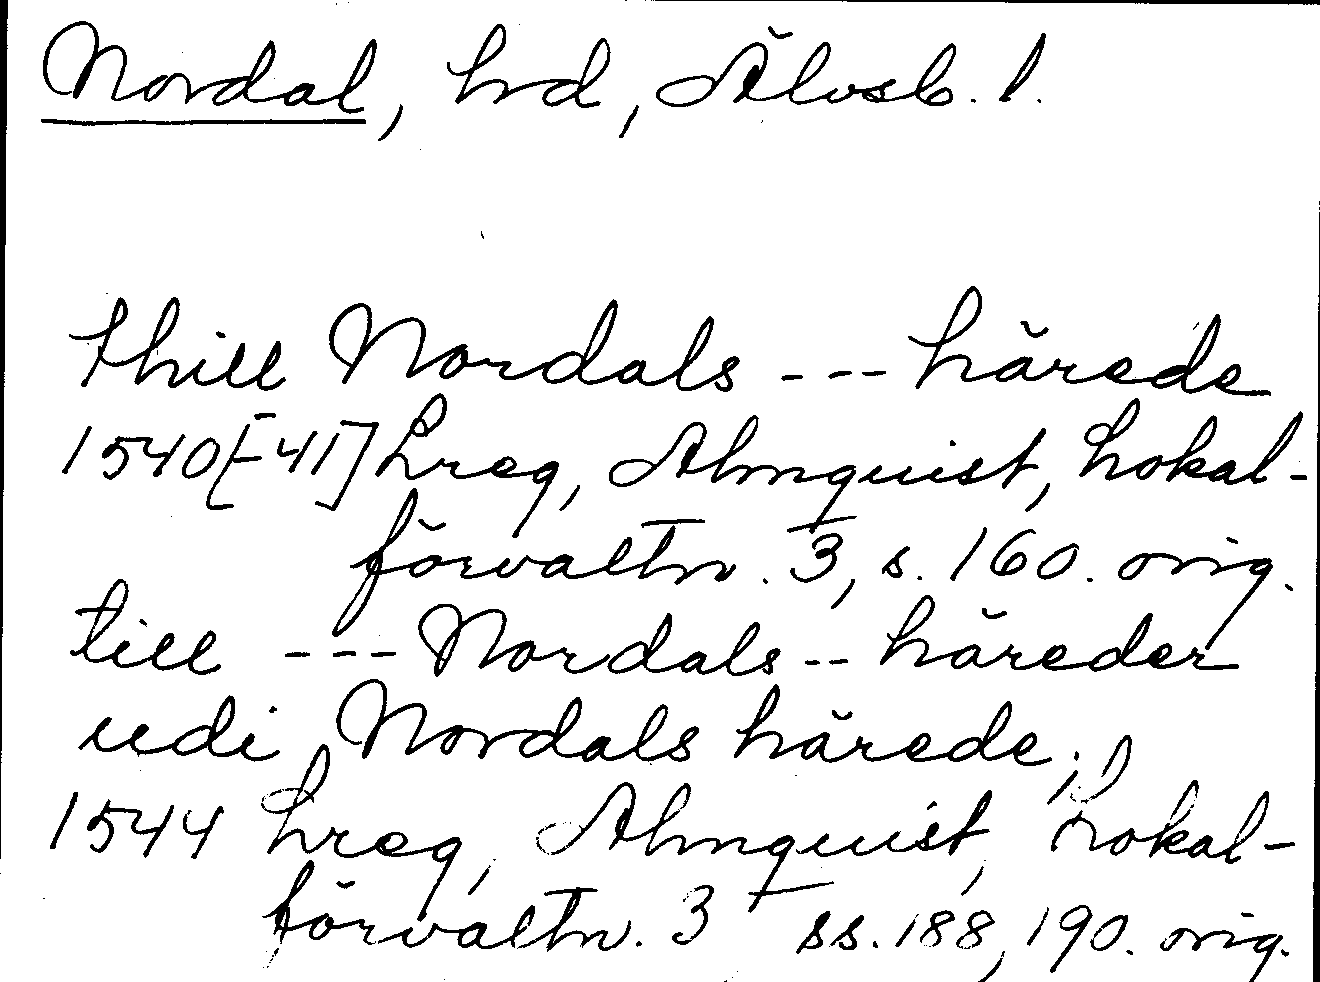 Nordal, hrd, Älvsb. l.
thill Nordals --- härede
1540[-41] Lreg, Almquist, Lokal-
förvaltn. 3, s. 160. orig.
till --- Nordals -- häreder
udi Nordals härede;
1544 Lreg, Almquist, Lokal-
förvaltn. 3 ss. 188, 190. orig.